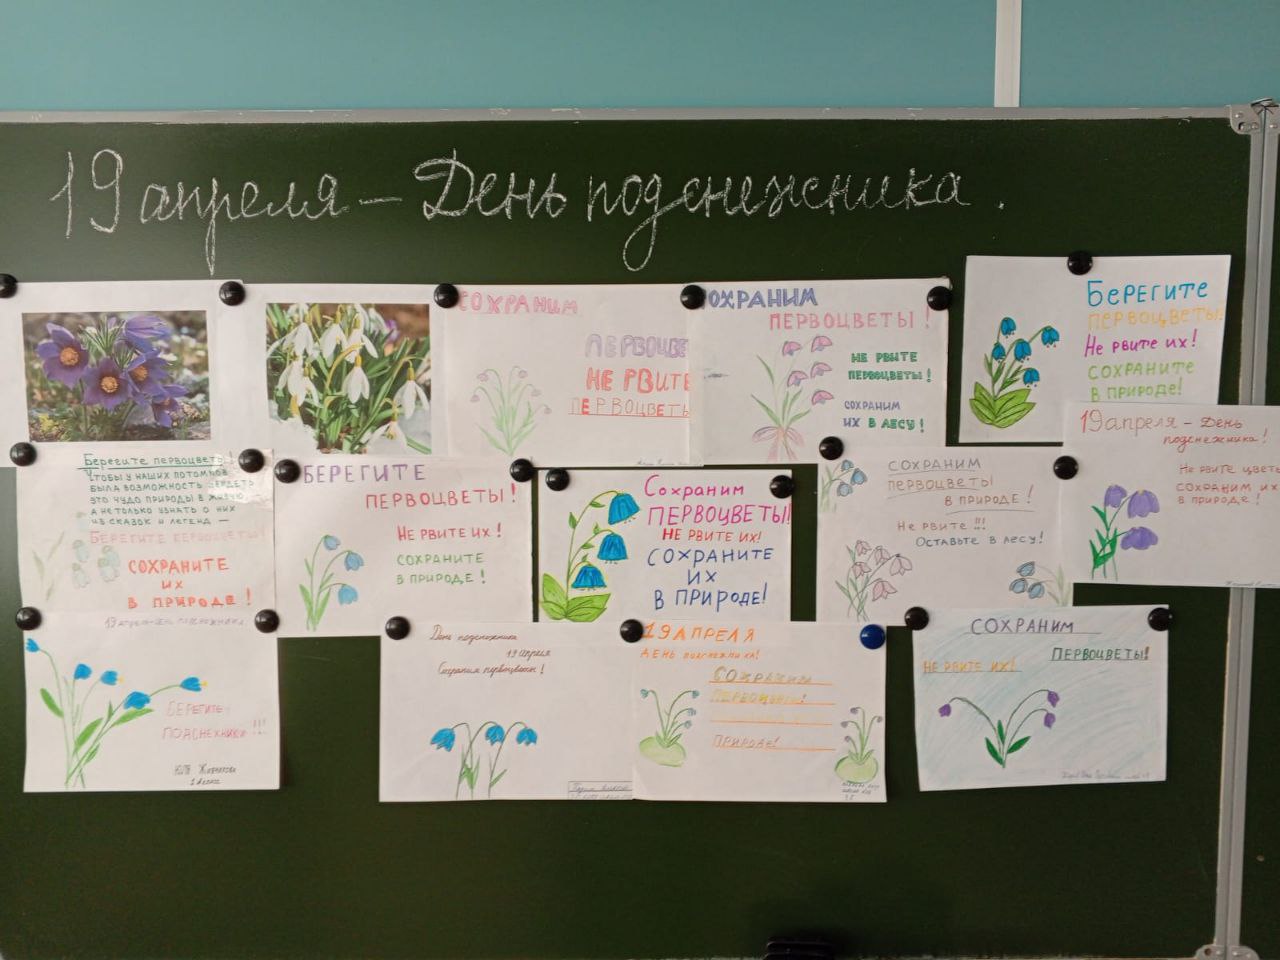 19 апреля – День подснежника.
СОХРАНИМ
ПЕРВОЦВЕ
НЕ РВИТЕ
ПЕРВОЦВЕТЫ
СОХРАНИМ
ПЕРВОЦВЕТЫ!
НЕ РВИТЕ
ПЕРВОЦВЕТЫ!
СОХРАНИМ
ИХ В ЛЕСУ!
БЕРЕГИТЕ
ПЕРВОЦВЕТЫ!
Не рвите их!
СОХРАНИТЕ
В ПРИРОДЕ!
Берегите первоцветы!
Чтобы у наших потомков
была возможность увидеть
это чудо природы в живую,
а не только узнать о них
из сказок и легенд –
БЕРЕГИТЕ ПЕРВОЦВЕТЫ!
СОХРАНИТЕ
ИХ
В ПРИРОДЕ!
БЕРЕГИТЕ
ПЕРВОЦВЕТЫ!
НЕ РВИТЕ ИХ!
СОХРАНИТЕ
В ПРИРОДЕ!
Сохраним
ПЕРВОЦВЕТЫ!
НЕ РВИТЕ ИХ!
СОХРАНИТЕ
ИХ
В ПРИРОДЕ!
СОХРАНИМ
ПЕРВОЦВЕТЫ
В ПРИРОДЕ!
Не рвите!!!
Оставьте в лесу!
19 апреля – День
подснежника!
Не рвите цветы
сохраним их
в природе!
19 апреля – день подснежника.
БЕРЕГИТЕ
ПОДСНЕЖНИКИ!!!
День подснежника
19 апреля
Сохраним первоцветы!
19 АПРЕЛЯ
ДЕНЬ ПОДСНЕЖНИКА!
СОХРАНИМ
ПЕРВОЦВЕТЫ!
ПРИРОДЕ!
СОХРАНИМ
ПЕРВОЦВЕТЫ!
НЕ РВИТЕ ИХ!